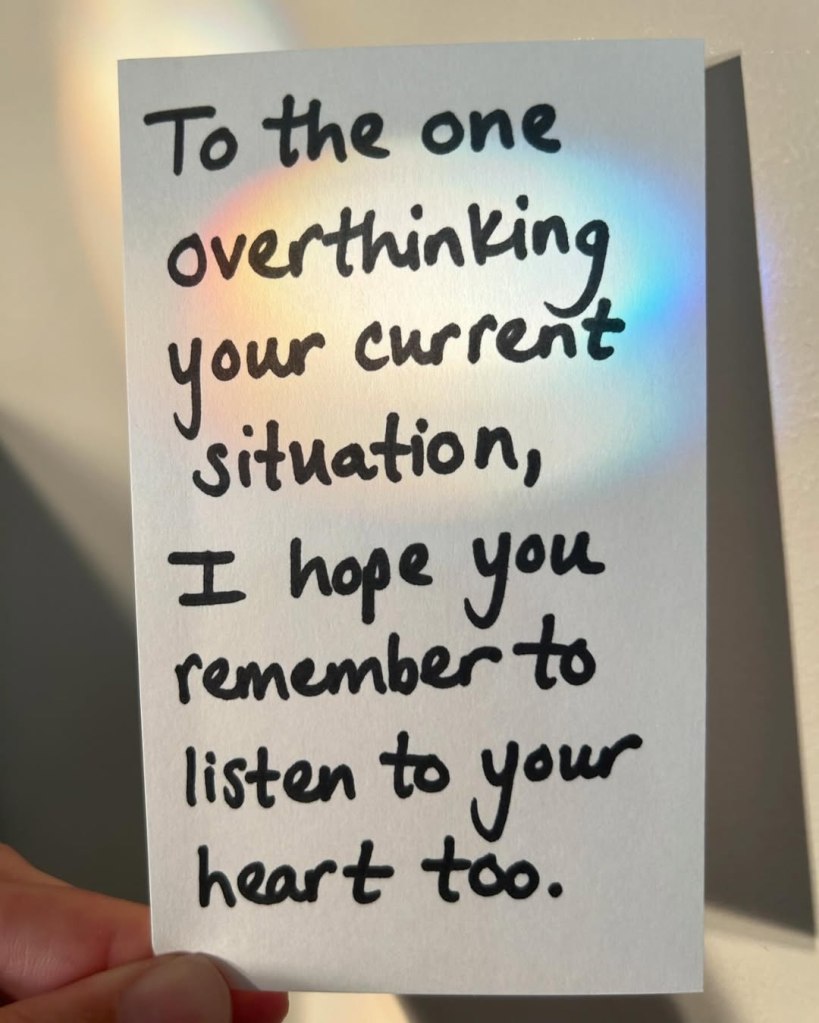 To the one
overthinking
your current
situation,
I hope you
remember to
listen to your
heart too.